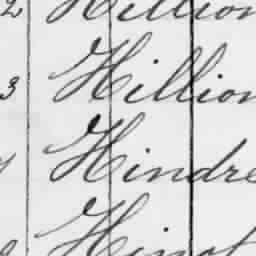 2 Hillion
3 Hillion
Hindre
Hinot